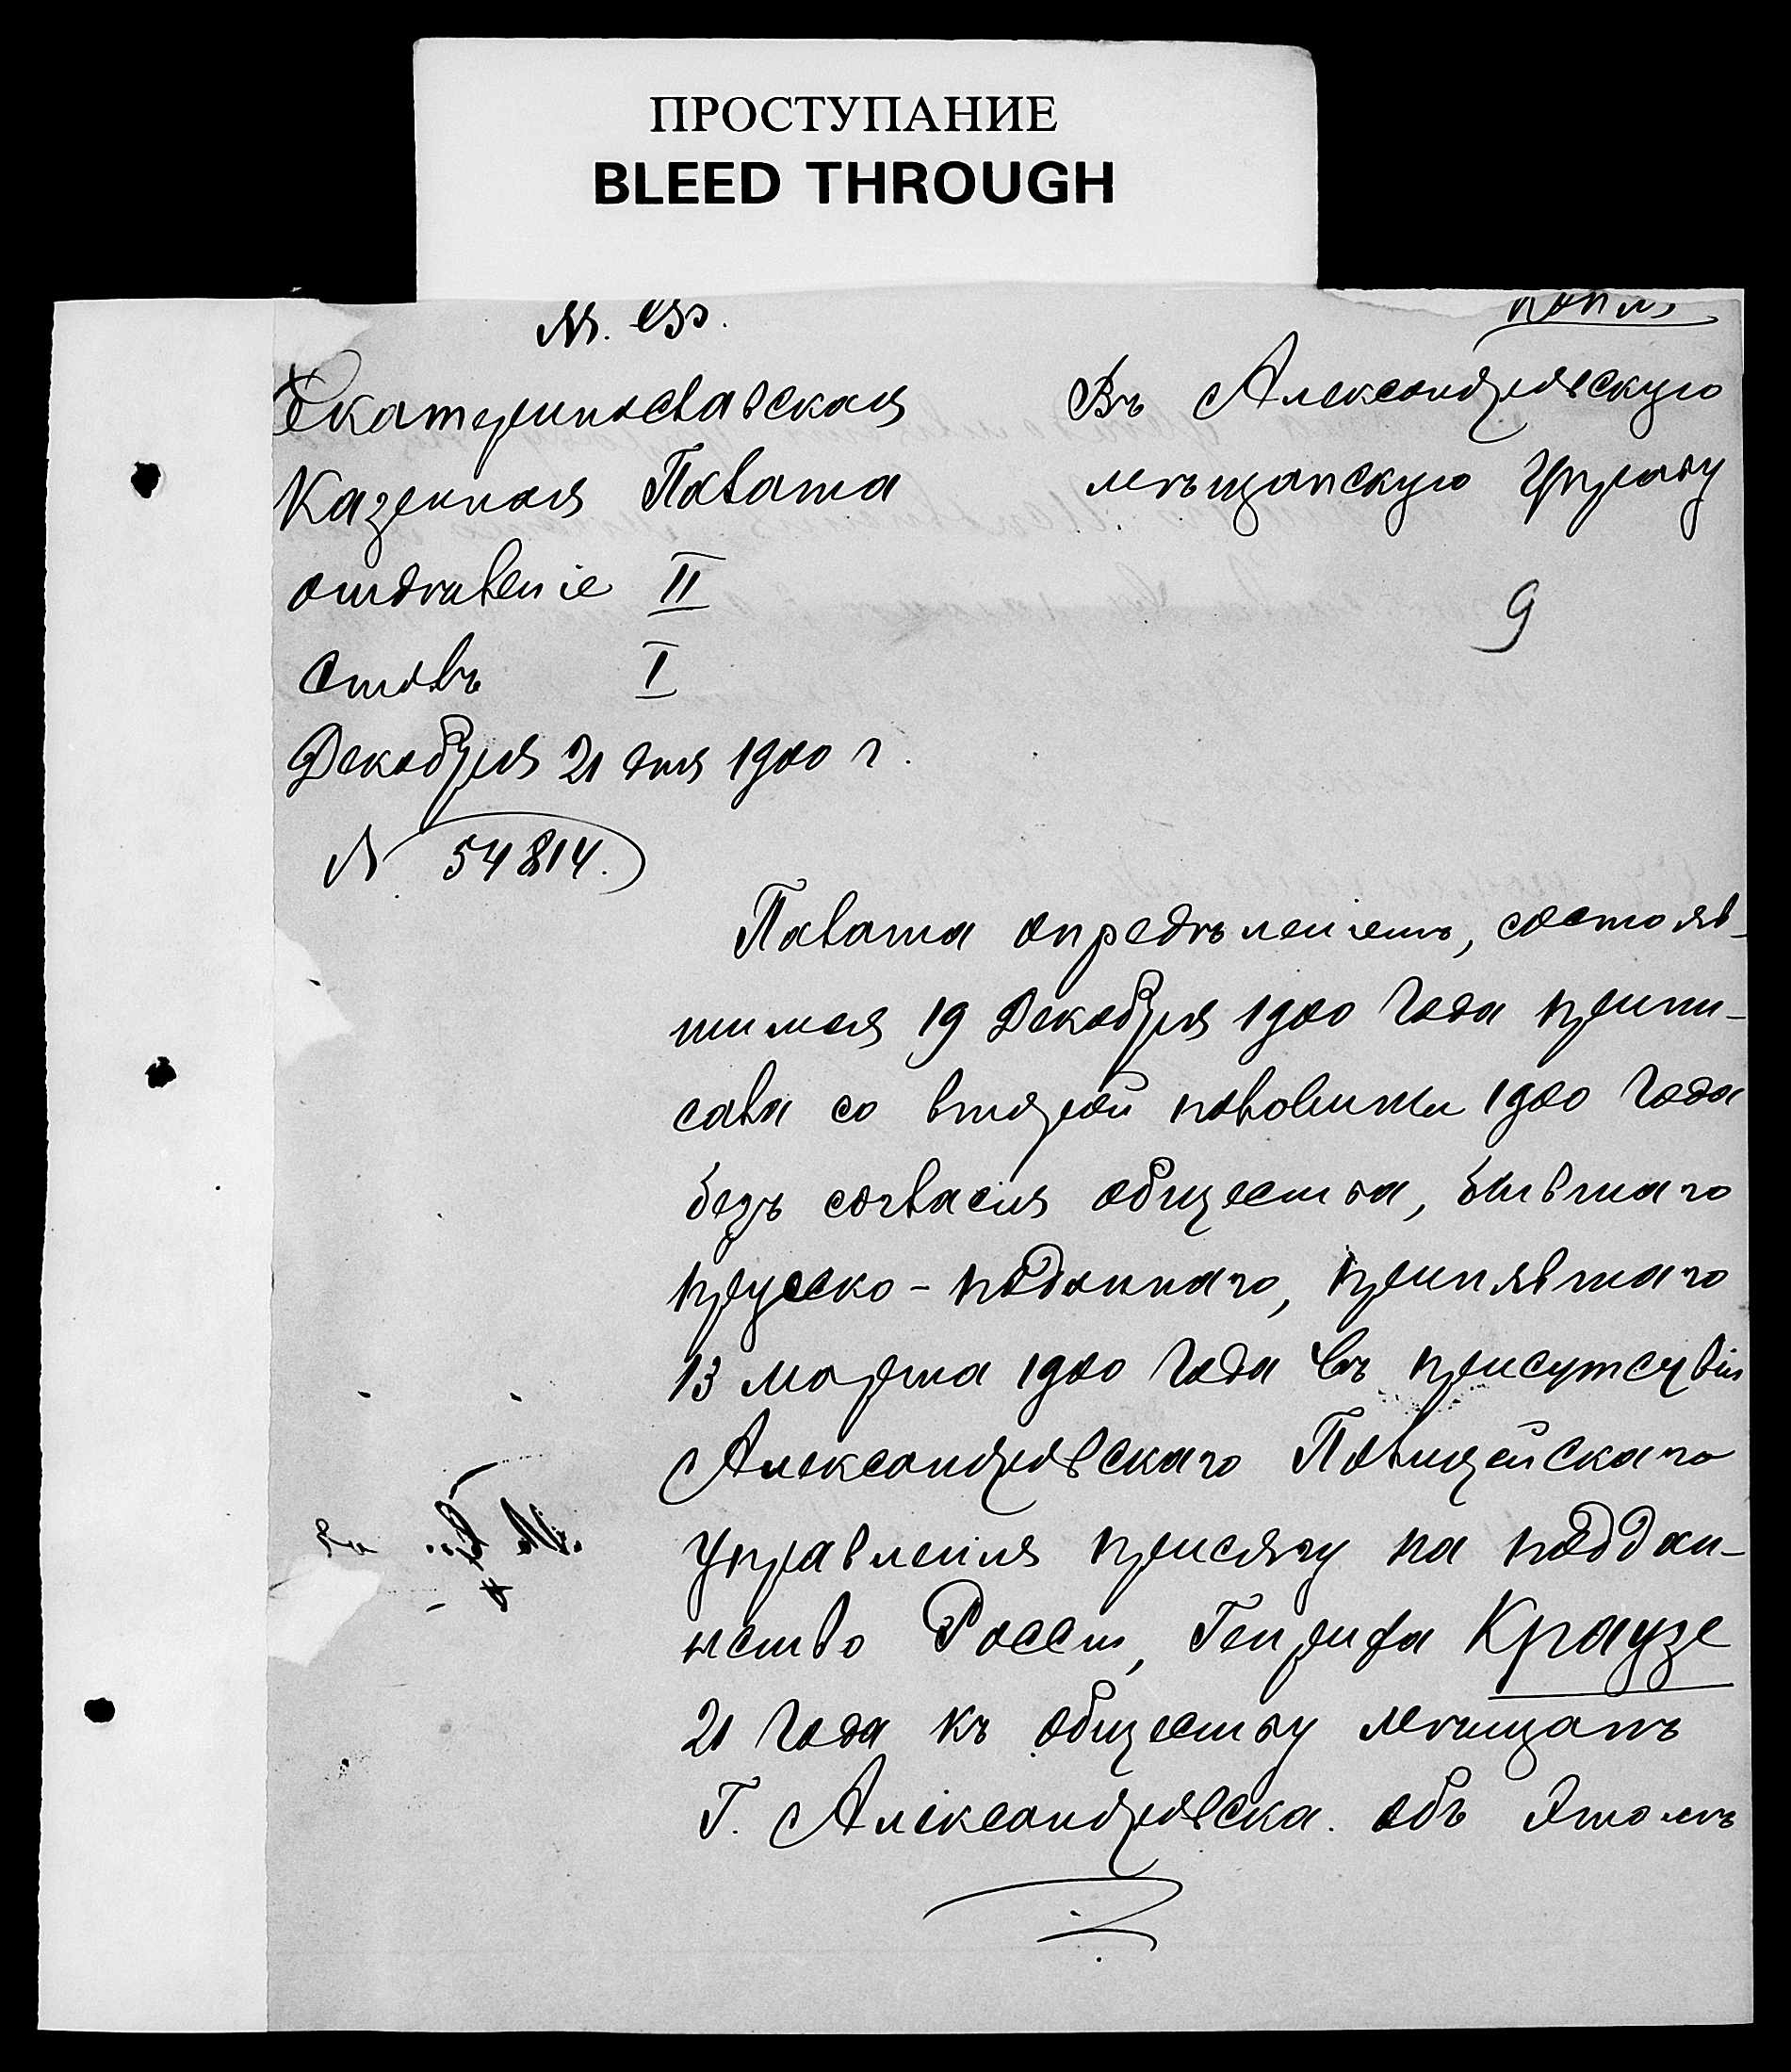 ПРОСТУПАНИЕ
BLEED THROUGH
М. Ф.
Копія
Екатеринославская
Казенная Палата
отдѣленіе II
Столъ I
Декабря 21 дня 1900 г.
N 54814.
Въ Александровскую
мѣщанскую Управу
9
Палата опредѣленіемъ, состояв-
шимся 19 Декабря 1900 года припи-
сала со второй половины 1900 года
безъ согласія общества, бывшаго
прусско-подданнаго, принявшаго
13 марта 1900 года въ присутствіи
Александровскаго Полицейскаго
Управленія присягу на поддан-
нство Россіи, Генриха Краузе
21 года къ обществу мѣщанъ
Г. Александровска. Объ этомъ